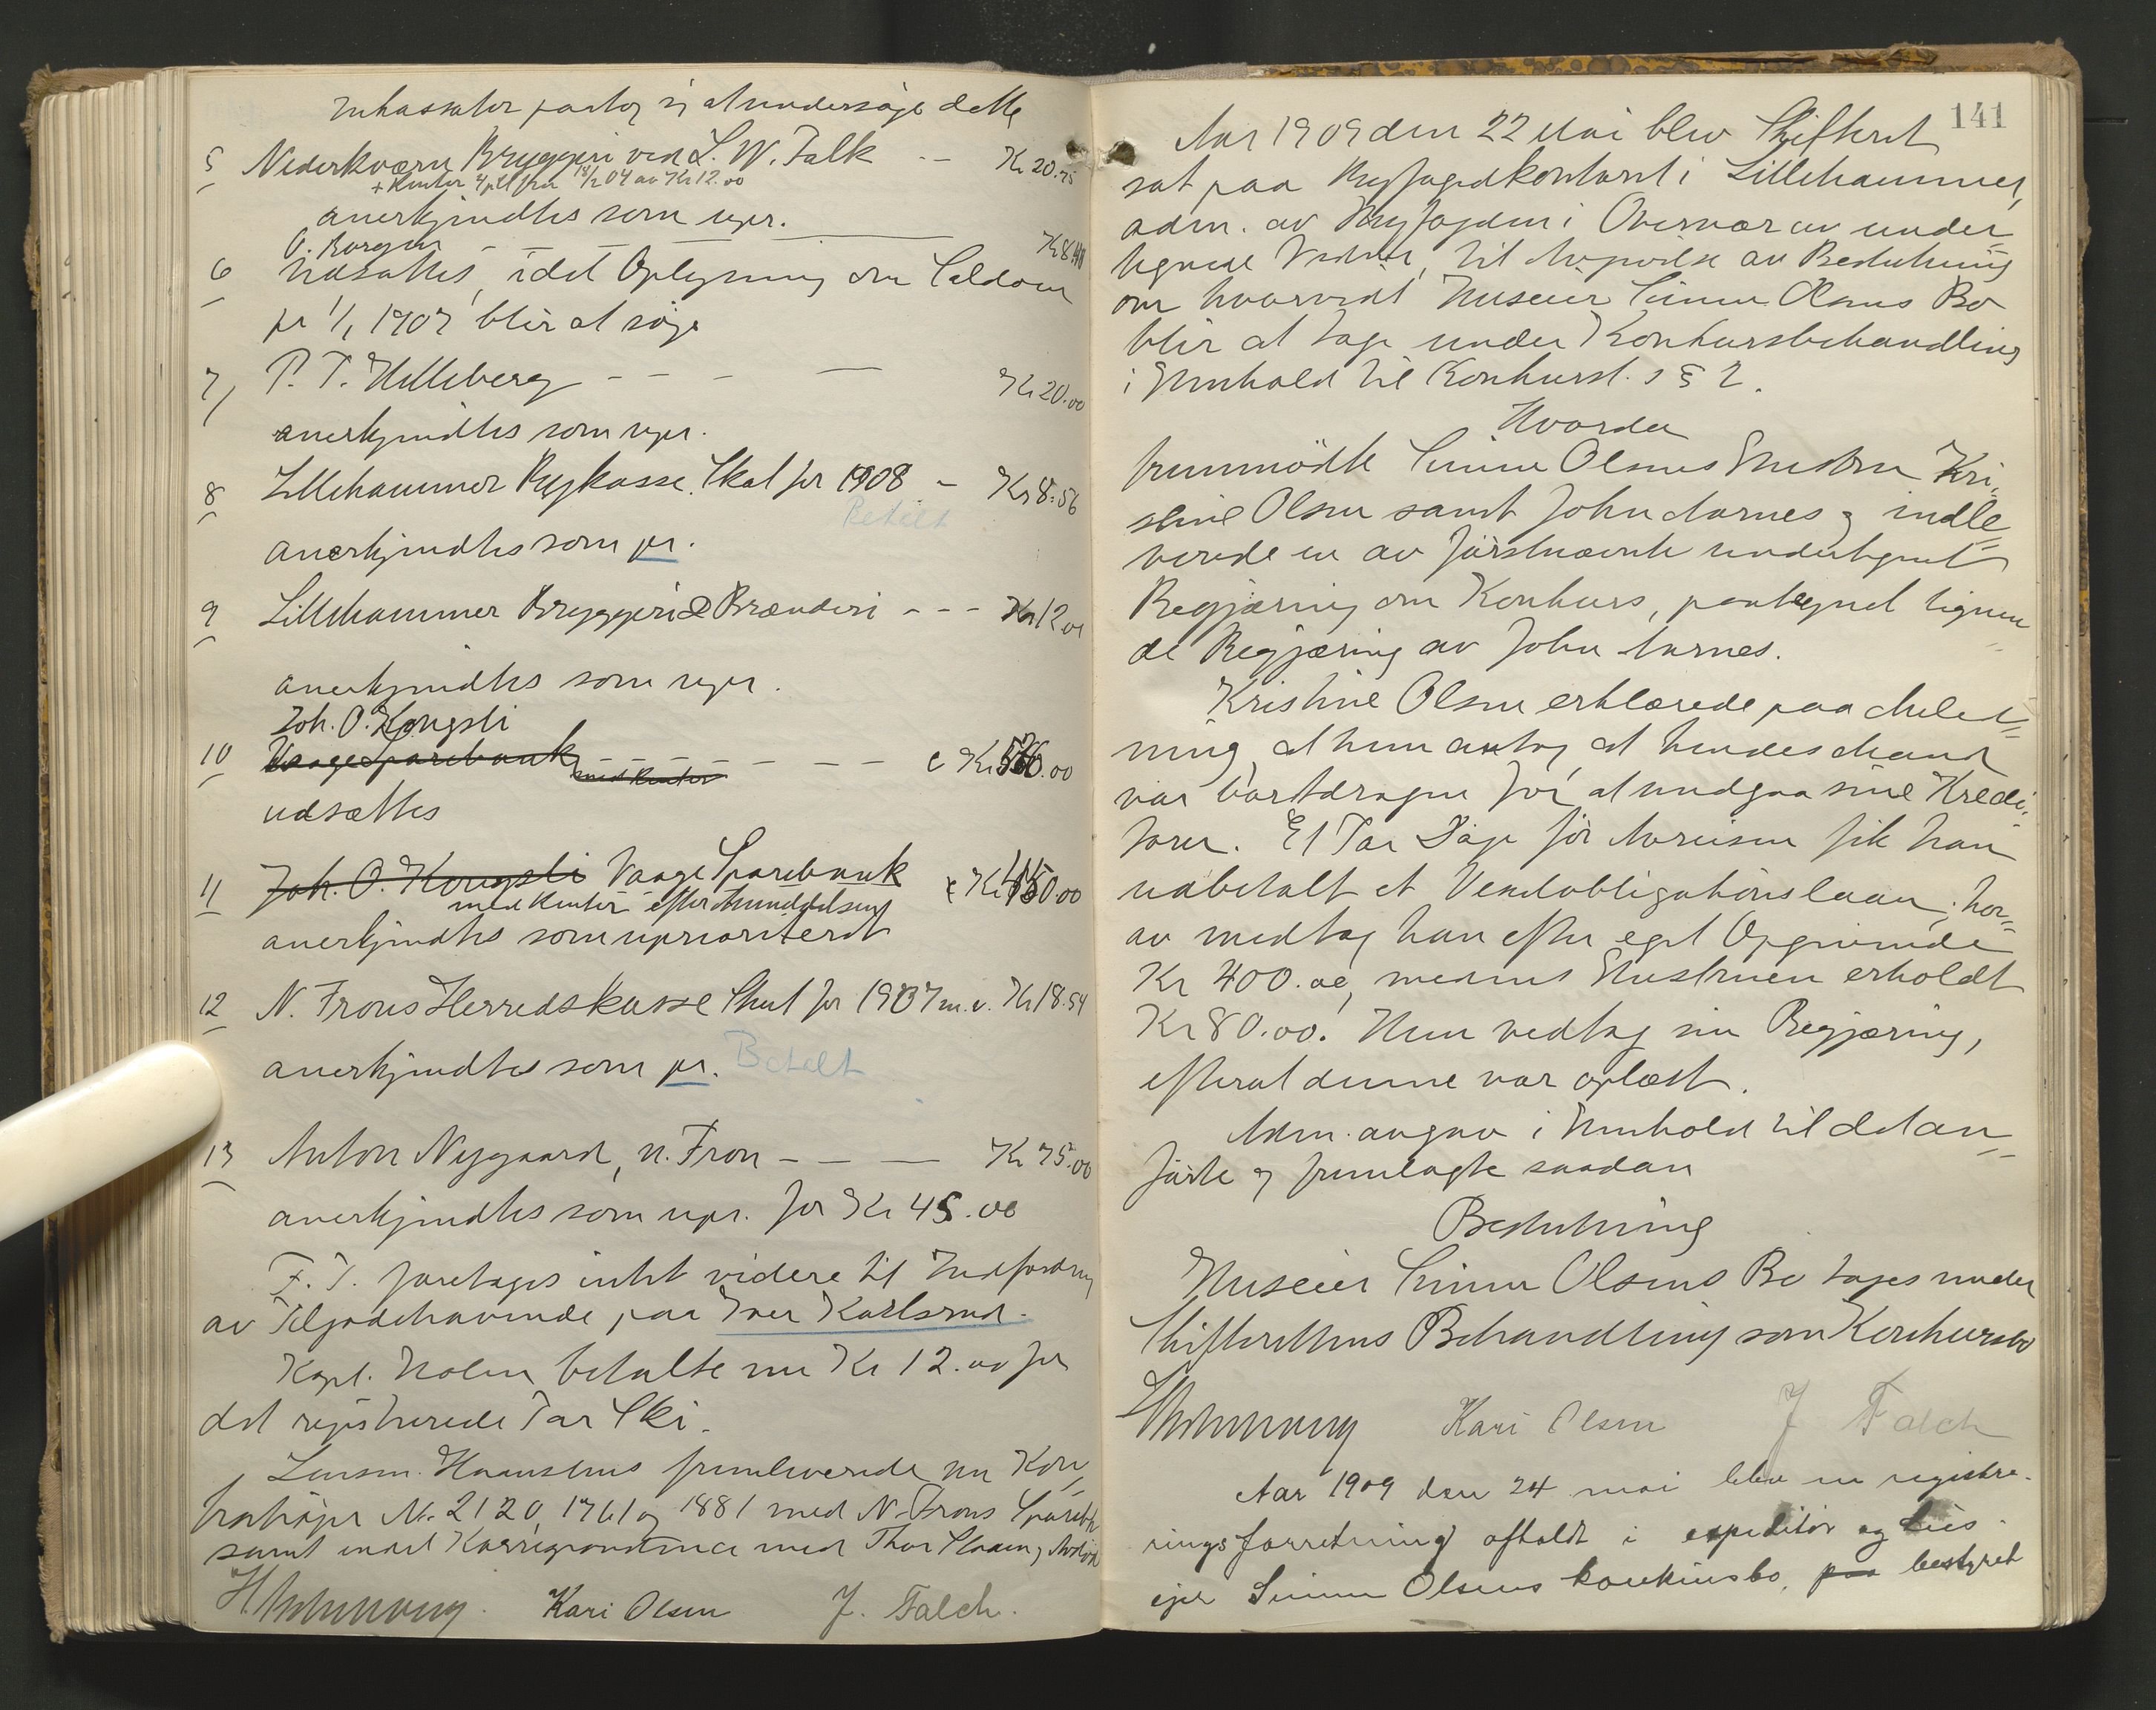 Inkassator paatog sig at undersøge dette
5 Nederkværn Bryggeri ved L. W. Falk -- Kr 20.75
+ Renter 4 pCt fra 18/2 04 av Kr 12.00
anerkjendtes som upr.
O. Borgen - - - Kr 8.40
6 Udsattes, idet Oplysning om Saldoen
pr 1/1 1907 blir at søge
7 P. T. Hilleberg - - - Kr 20.00
anerkjendtes som upr.
8 Lillehammer Bykasse. Skat for 1908 - Kr 8.56
Betalt
anerkjendtes som pr.
9 Lillehammer Bryggeri & Brænderi - - - Kr 12.00
anerkjendtes som upr.
Joh. O. Kongsli
10 Vaage Sparebank med Renter - - - - - - c Kr .00
udsættes
11 Joh. O. Kongsli Vaage Sparebank c Kr .00
med Renter efter Anmeldelsen
anerkjendtes som uprioriteret
12 N. Frons Herredskasse Skat for 1907 m.v. Kr 18.54
anerkjendtes som pr. Betalt
13 Anton Nygaard, N. Fron - - - Kr 75.00
anerkjendtes som upr. for Kr 45.00
F. T. foretages intet videre til Indfordring
av Tilgodehavende paa Iver Karlsrud.
Kapt. Holm betalte nu Kr 12.00 for
det registrerede Par Ski.
Lensm. Haanshus fremleverede nu Kon-
trabøger Nr. 2120, 1761 og 1881 med N. Frons Spareb.
samt endel Korrespondance med Thor
Kari Olsen J. Falch.
141
Aar 1909 den 22 Mai blev Skifteret
sat paa Byfogedkontoret i Lillehammer,
adm. av Byfogden i Overvær av under-
tegnede Vidner, til Avgivelse av Beslutning
om hvorvidt Huseier Simen Olsens Bo
blir at tage under Konkursbehandling
i Henhold til Konkursl.s § 2.
Hvorda
fremmødte Simen Olsens Hustru Kri-
stine Olsen samt John Aarnes og indle-
verede en av førstnævnte undertegnet
Begjæring om Konkurs, paategnet lignen-
de Begjæring av John Aarnes.
Kristine Olsen erklærede paa Anled-
ning, at hun antog at hendes Mand
var bortdragen for at undgaa sine Kredi-
torer. Et Par Dage før Avreisen fik han
udbetalt et Pendobligationslaan; hor-
av medtog han efter eget Opgivende
Kr 400.00, medens Hustruen erholdt
Kr 80.00. Hun vedtog sin Begjæring,
efterat denne var oplæst.
Adm. avgav i Henhold til det an-
førte og fremlagte saadan
Beslutning
Huseier Simen Olsens Bo tages under
Skifterettens Behandling som Konkursbo
Kari Olsen J Falch
Aar 1909 den 24 mai blev en registre-
ringsforretning afholdt i expeditør og hus-
ejer Simen Olsens konkursbo, paa bestyret